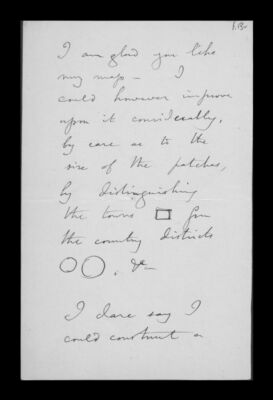 I am glad you like
my map — I
could however improve
upon it considerably,
by care as to the
size of the patches,
by distinguishing
the towns from
the country districts
, &c
I dare say I
could construct a